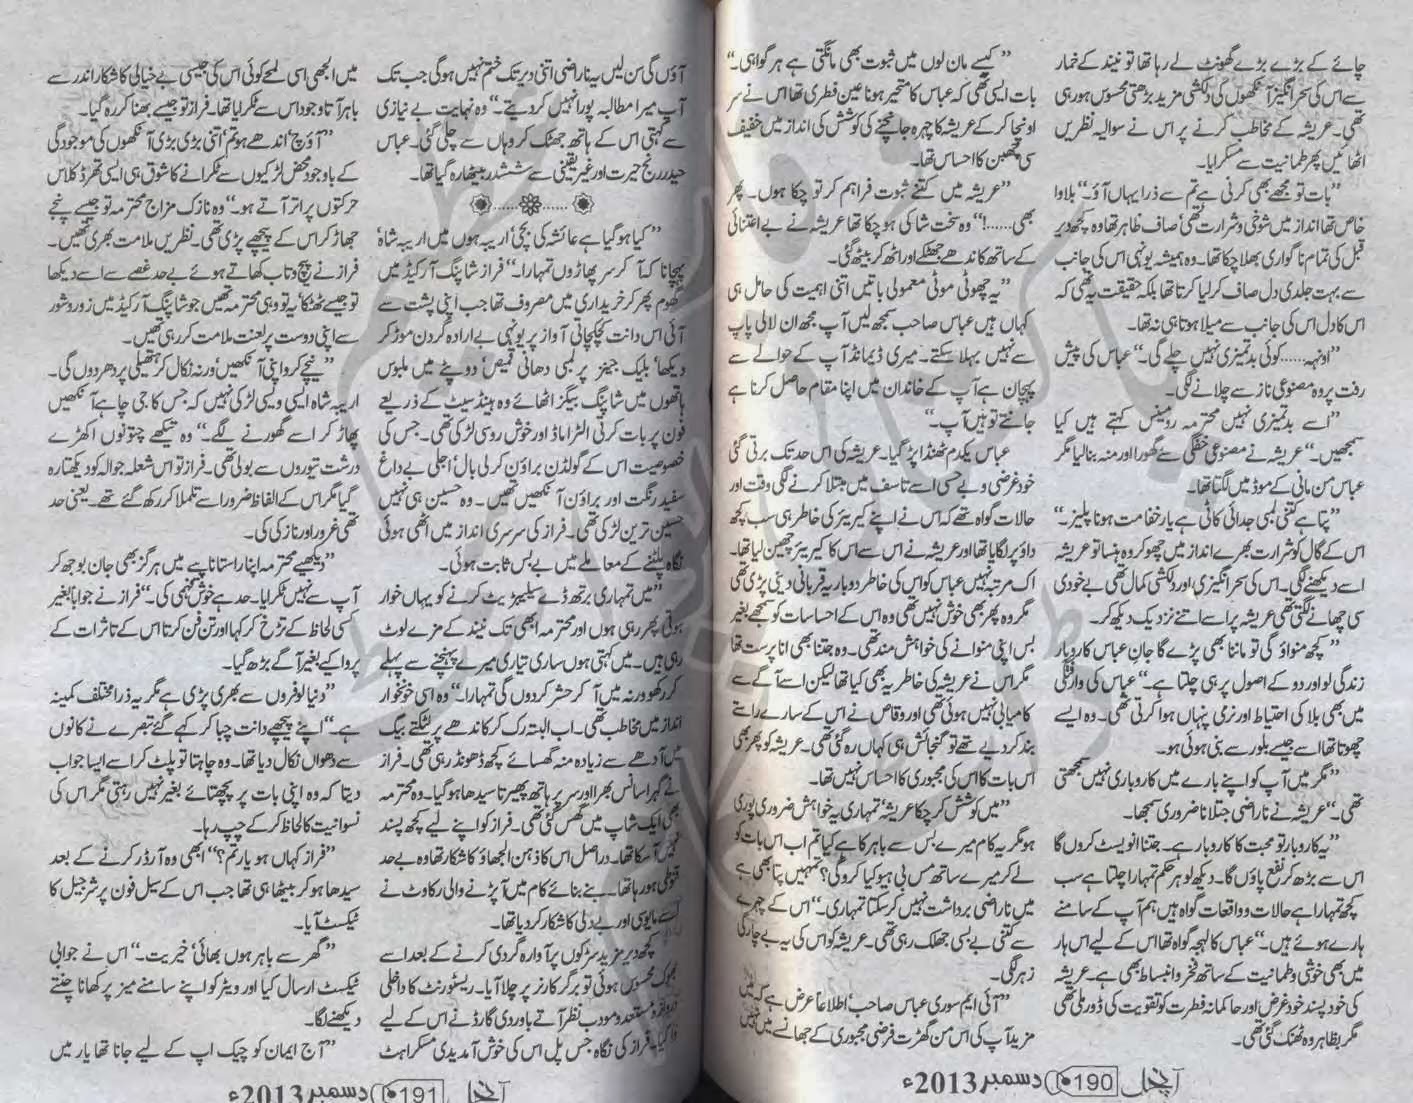 چائے کے بڑے بڑے گھونٹ لے رہا تھا تو نیند کے خمار
سے اس کی سحر انگیز آنکھوں کی دلکشی مزید بڑھتی محسوس ہو رہی
تھی۔ عریشہ کے مخاطب کرنے پر اس نے سوالیہ نظریں
اٹھائیں پھر طمانیت سے مسکرایا۔
”بات تو مجھے بھی کرنی ہے تم سے ذرا یہاں آؤ۔“ بلاوا
خاص تھا انداز میں شوخی و شرارت تھی‘ صاف ظاہر تھا وہ کچھ دیر
قبل کی تمام ناگواری بھلا چکا تھا۔ وہ ہمیشہ یونہی اس کی جانب
سے بہت جلدی دل صاف کر لیا کرتا تھا بلکہ حقیقت یہ تھی کہ
اس کا دل اس کی جانب سے میلا ہوتا ہی نہ تھا۔
”اونہہ......کوئی بدتمیزی نہیں چلے گی۔“ عباس کی پیش
رفت پر وہ مصنوعی ناز سے چلانے لگی۔
”اسے بدتمیزی نہیں محترمہ رومینس کہتے ہیں کیا
سمجھیں۔“ عریشہ نے مصنوعی خفگی سے گھورا اور منہ بنا لیا مگر
عباس من مانی کے موڈ میں لگتا تھا۔
”پتا ہے کتنی لمبی جدائی کاٹی ہے یار خفا مت ہونا پلیز۔“
اس کے گال کو شرارت بھرے انداز میں چھو کر وہ ہنسا تو عریشہ
اسے دیکھنے لگی۔ اس کی سحر انگیزی اور دلکشی کمال تھی بے خودی
سی چھانے لگتی تھی عریشہ پر اسے اتنے نزدیک دیکھ کر۔
”کچھ منواؤ گی تو ماننا بھی پڑے گا جانِ عباس کاروبار
زندگی لو اور دو کے اصول پر ہی چلتا ہے۔“ عباس کی وارفتگی
میں بھی بلا کی احتیاط اور نرمی پنہاں ہوا کرتی تھی۔ وہ ایسے
چھوتا تھا اسے جیسے بلور سے بنی ہوئی ہو۔
”مگر میں آپ کو اپنے بارے میں کاروباری نہیں سمجھتی
تھی۔“ عریشہ نے ناراضی جتلانا ضروری سمجھا۔
”یہ کاروبار تو محبت کا کاروبار ہے۔ جتنا انویسٹ کروں گا
اس سے بڑھ کر نفع پاؤں گا۔ دیکھ لو ہر حکم تمہارا چلتا ہے سب
کچھ تمہارا ہے حالات و واقعات گواہ ہیں ہم آپ کے سامنے
ہارے ہوئے ہیں۔“ عباس کا لہجہ گواہ تھا اس کے لیے اس ہار
میں بھی خوشی و طمانیت کے ساتھ فخر و انبساط بھی ہے۔ عریشہ
کی خود پسند خود غرض اور حاکمانہ فطرت کو تقویت کی ڈور ملی تھی
مگر بظاہر وہ ٹھنک گئی تھی۔
”کیسے مان لوں میں ثبوت بھی مانگتی ہے ہر گواہی۔“
بات ایسی تھی کہ عباس کا متحیر ہونا عین فطری تھا اس نے سر
اونچا کر کے عریشہ کا چہرہ جانچنے کی کوشش کی انداز میں خفیف
سی چھبن کا احساس تھا۔
”عریشہ میں کتنے ثبوت فراہم کر تو چکا ہوں۔ پھر
بھی......!“ وہ سخت شاکی ہو چکا تھا عریشہ نے بے اعتنائی
کے ساتھ کاندھے جھٹکے اور اٹھ کر بیٹھ گئی۔
”یہ چھوٹی موٹی معمولی باتیں اتنی اہمیت کی حامل ہی
کہاں ہیں عباس صاحب سمجھ لیں آپ مجھے ان لالی پاپ
سے نہیں بہلا سکتے۔ میری ڈیمانڈ آپ کے حوالے سے
پہچان ہے آپ کے خاندان میں اپنا مقام حاصل کرنا ہے
جانتے تو ہیں آپ۔“
عباس یکدم ٹھنڈا پڑ گیا۔ عریشہ کی اس حد تک برتی گئی
خود غرضی و بے حسی اسے تاسف میں مبتلا کرنے لگی وقت اور
حالات گواہ تھے کہ اس نے اپنے کیریئر کی خاطر ہی سب کچھ
داؤ پر لگایا تھا اور عریشہ نے اس سے اس کا کیریئر چھین لیا تھا۔
اک مرتبہ نہیں عباس کو اس کی خاطر دو بار یہ قربانی دینی پڑی تھی
مگر وہ پھر بھی خوش نہیں تھی وہ اس کے احساسات کو سمجھے بغیر
بس اپنی منوانے کی خواہش مند تھی۔ وہ جتنا بھی انا پرست تھا
مگر اس نے عریشہ کی خاطر یہ بھی کیا تھا لیکن اسے آگے سے
کامیابی نہیں ہوئی تھی اور وقاص نے اس کے سارے راستے
بند کر دیے تھے تو گنجائش ہی کہاں رہ گئی تھی۔ عریشہ کو پھر بھی
اس بات کا اس کی مجبوری کا احساس نہیں تھا۔
”میں کوشش کر چکا عریشہ‘ تمہاری یہ خواہش ضروری پوری
ہو مگر یہ کام میرے بس سے باہر کا ہے کیا تم اب اس بات کو
لے کر میرے ساتھ مس بی ہیو کیا کرو گی؟ تمہیں پتا بھی ہے
میں ناراضی برداشت نہیں کر سکتا تمہاری۔“ اس کے چہرے
سے کتنی بے بسی جھلک رہی تھی۔ عریشہ کو اس کی یہ بے چارگی
زہر لگی۔
”آئی ایم سوری عباس صاحب‘ اطلاعاً عرض ہے کہ میں
مزید آپ کی اس من گھڑت فرضی مجبوری کے جھانسے میں نہیں
آنچل 190 دسمبر 2013ء
آؤں گی سن لیں یہ ناراضی اتنی دیر تک ختم نہیں ہو گی جب تک
آپ میرا مطالبہ پورا نہیں کر دیتے۔“ وہ نہایت بے نیازی
سے کہتی اس کے ہاتھ جھٹک کر وہاں سے چلی گئی۔ عباس
حیدر رنج حیرت اور غیر یقینی سے ششدر بیٹھا رہ گیا تھا۔
”کیا ہو گیا ہے عائشہ کی بچی‘ اریبہ ہوں میں اریبہ شاہ‘
پہچانا کہ آ کر سر پھاڑوں تمہارا۔“ فراز شاپنگ آرکیڈ میں
گھوم پھر کر خریداری میں مصروف تھا جب اپنی پشت سے
آئی اس دانت کچکچاتی آواز پر یونہی بے ارادہ گردن موڑ کر
دیکھا‘ بلیک جینز پر لمبی دھانی قمیص‘ دوپٹے میں ملبوس
ہاتھوں میں شاپنگ بیگز اٹھائے وہ ہینڈ سیٹ کے ذریعے
فون پر بات کرتی الٹرا ماڈ اور خوش رو سی لڑکی تھی۔ جس کی
خصوصیت اس کے گولڈن براؤن کرلی بال‘ اجلی بے داغ
سفید رنگت اور براؤن آنکھیں تھیں۔ وہ حسین ہی نہیں
حسین ترین لڑکی تھی۔ فراز کی سرسری انداز میں اٹھی ہوئی
نگاہ پلٹنے کے معاملے میں بے بس ثابت ہوئی۔
”میں تمہاری برتھ ڈے سیلیبریٹ کرنے کو یہاں خوار
ہوتی پھر رہی ہوں اور محترمہ ابھی تک نیند کے مزے لوٹ
رہی ہیں۔ میں کہتی ہوں ساری تیاری میرے پہنچنے سے پہلے
کر رکھو ورنہ میں آ کر حشر کر دوں گی تمہارا۔“ وہ اسی خونخوار
انداز میں مخاطب تھی۔ اب البتہ رک کر کاندھے پر لٹکتے بیگ
میں آدھے سے زیادہ منہ گھسائے کچھ ڈھونڈ رہی تھی۔ فراز
نے گہرا سانس بھرا اور سر پر ہاتھ پھیرتا سیدھا ہو گیا۔ وہ محترمہ
بھی ایک شاپ میں گھس گئی تھی۔ فراز کو اپنے لیے کچھ پسند
نہیں آ سکا تھا۔ دراصل اس کا ذہن الجھاؤ کا شکار تھا وہ بے حد
قنوطی ہو رہا تھا۔ بنے بنائے کام میں آ پڑنے والی رکاوٹ نے
اسے مایوسی اور بے دلی کا شکار کر دیا تھا۔
کچھ دیر مزید سڑکوں پر آوارہ گردی کرنے کے بعد اسے
بھوک محسوس ہوئی تو برگر کارنر پر چلا آیا۔ ریسٹورنٹ کا داخلی
دروازہ مستعد و مودب نظر آتے باوردی گارڈ نے اس کے لیے
وا کیا۔ فراز کی نگاہ جس پل اس کی خوش آمدیدی مسکراہٹ
میں الجھی اسی لمحے کوئی اس کی جیسی بے خیالی کا شکار اندر سے
باہر آتا وجود اس سے ٹکرایا تھا۔ فراز تو جیسے بھنا کر رہ گیا۔
”آؤچ‘ اندھے ہو تم‘ اتنی بڑی بڑی آنکھوں کی موجودگی
کے باوجود محض لڑکیوں سے ٹکرانے کا شوق ہی ایسی تھرڈ کلاس
حرکتوں پر اتر آتے ہو۔“ وہ نازک مزاج محترمہ تو جیسے پنجے
جھاڑ کر اس کے پیچھے پڑی تھی۔ نظریں ملامت بھری تھیں۔
فراز نے پیچ و تاب کھاتے ہوئے بے حد غصے سے اسے دیکھا
تو جیسے ٹھٹکا یہ تو وہی محترمہ تھیں جو شاپنگ آرکیڈ میں زور و شور
سے اپنی دوست پر لعنت ملامت کر رہی تھیں۔
”نیچے کرو اپنی آنکھیں‘ ورنہ نکال کر ہتھیلی پر دھر دوں گی۔
اریبہ شاہ ایسی ویسی لڑکی نہیں کہ جس کا جی چاہے آنکھیں
پھاڑ کر اسے گھورنے لگے۔“ وہ تیکھے چتونوں اکھڑے
درشت تیوروں سے بولی تھی۔ فراز تو اس شعلہ جوالہ کو دیکھتا رہ
گیا مگر اس کے الفاظ ضرور اسے تلملا کر رکھ گئے تھے۔ یعنی حد
تھی غرور اور نازکی کی۔
”دیکھیے محترمہ اپنا راستا ناپیے میں ہرگز بھی جان بوجھ کر
آپ سے نہیں ٹکرایا۔ حد ہے خوش فہمی کی۔“ فراز نے جواباً بغیر
کسی لحاظ کے تڑخ کر کہا اور تن فن کرتا اس کے تاثرات کے
پروا کیے بغیر آگے بڑھ گیا۔
”دنیا لوفروں سے بھری پڑی ہے مگر یہ ذرا مختلف کمینہ
ہے۔“ اپنے پیچھے دانت چبا کر کہے گئے تبصرے نے کانوں
سے دھواں نکال دیا تھا۔ وہ چاہتا تو پلٹ کر اسے ایسا جواب
دیتا کہ وہ اپنی بات پر پچھتائے بغیر نہیں رہتی مگر اس کی
نسوانیت کا لحاظ کر کے چپ رہا۔
”فراز کہاں ہو یار تم؟“ ابھی وہ آرڈر کرنے کے بعد
سیدھا ہو کر بیٹھا ہی تھا جب اس کے سیل فون پر شرجیل کا
ٹیکسٹ آیا۔
”گھر سے باہر ہوں بھائی‘ خیریت۔“ اس نے جوابی
ٹیکسٹ ارسال کیا اور ویٹر کو اپنے سامنے میز پر کھانا چنتے
دیکھنے لگا۔
”آج ایمان کو چیک اپ کے لیے جانا تھا یار میں
آنچل 191 دسمبر 2013ء